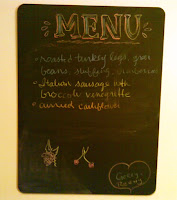 MENU
roasted turkey legs, green
beans, stuffing,
Italian sausage with
broccoli vinegrette
curried cauliflower